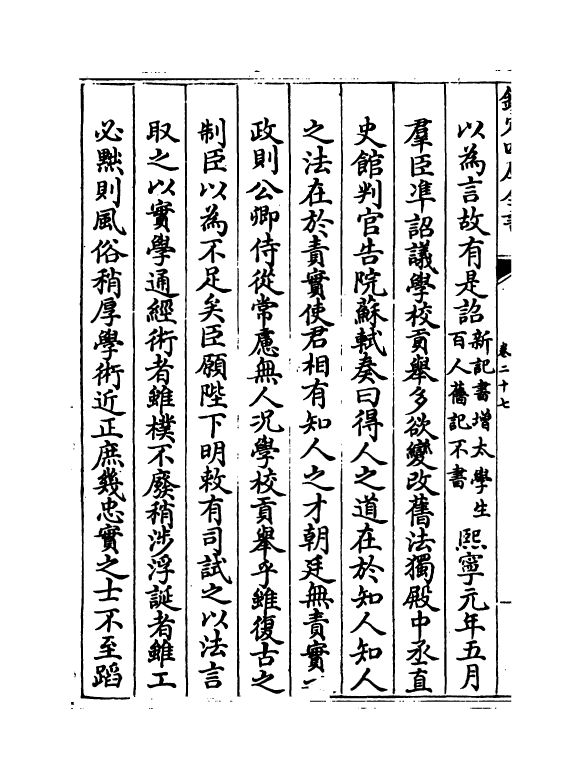 欽定四庫全書
卷二十七
以為言故有是詔新記書增太學生百人舊記不書熙寧元年五月
羣臣凖詔議學校貢舉多欲變改舊法獨殿中丞直
史館判官告院蘇軾奏曰得人之道在於知人知人
之法在於責實使君相有知人之才朝廷無責實
政則公卿侍從常慮無人況學校貢舉乎雖復古之
制臣以為不足矣臣願陛下明敕有司試之以法言
取之以實學通經術者雖樸不廢稍涉浮誕者雖工
必黜則風俗稍厚學術近正庶幾忠實之士不至蹈